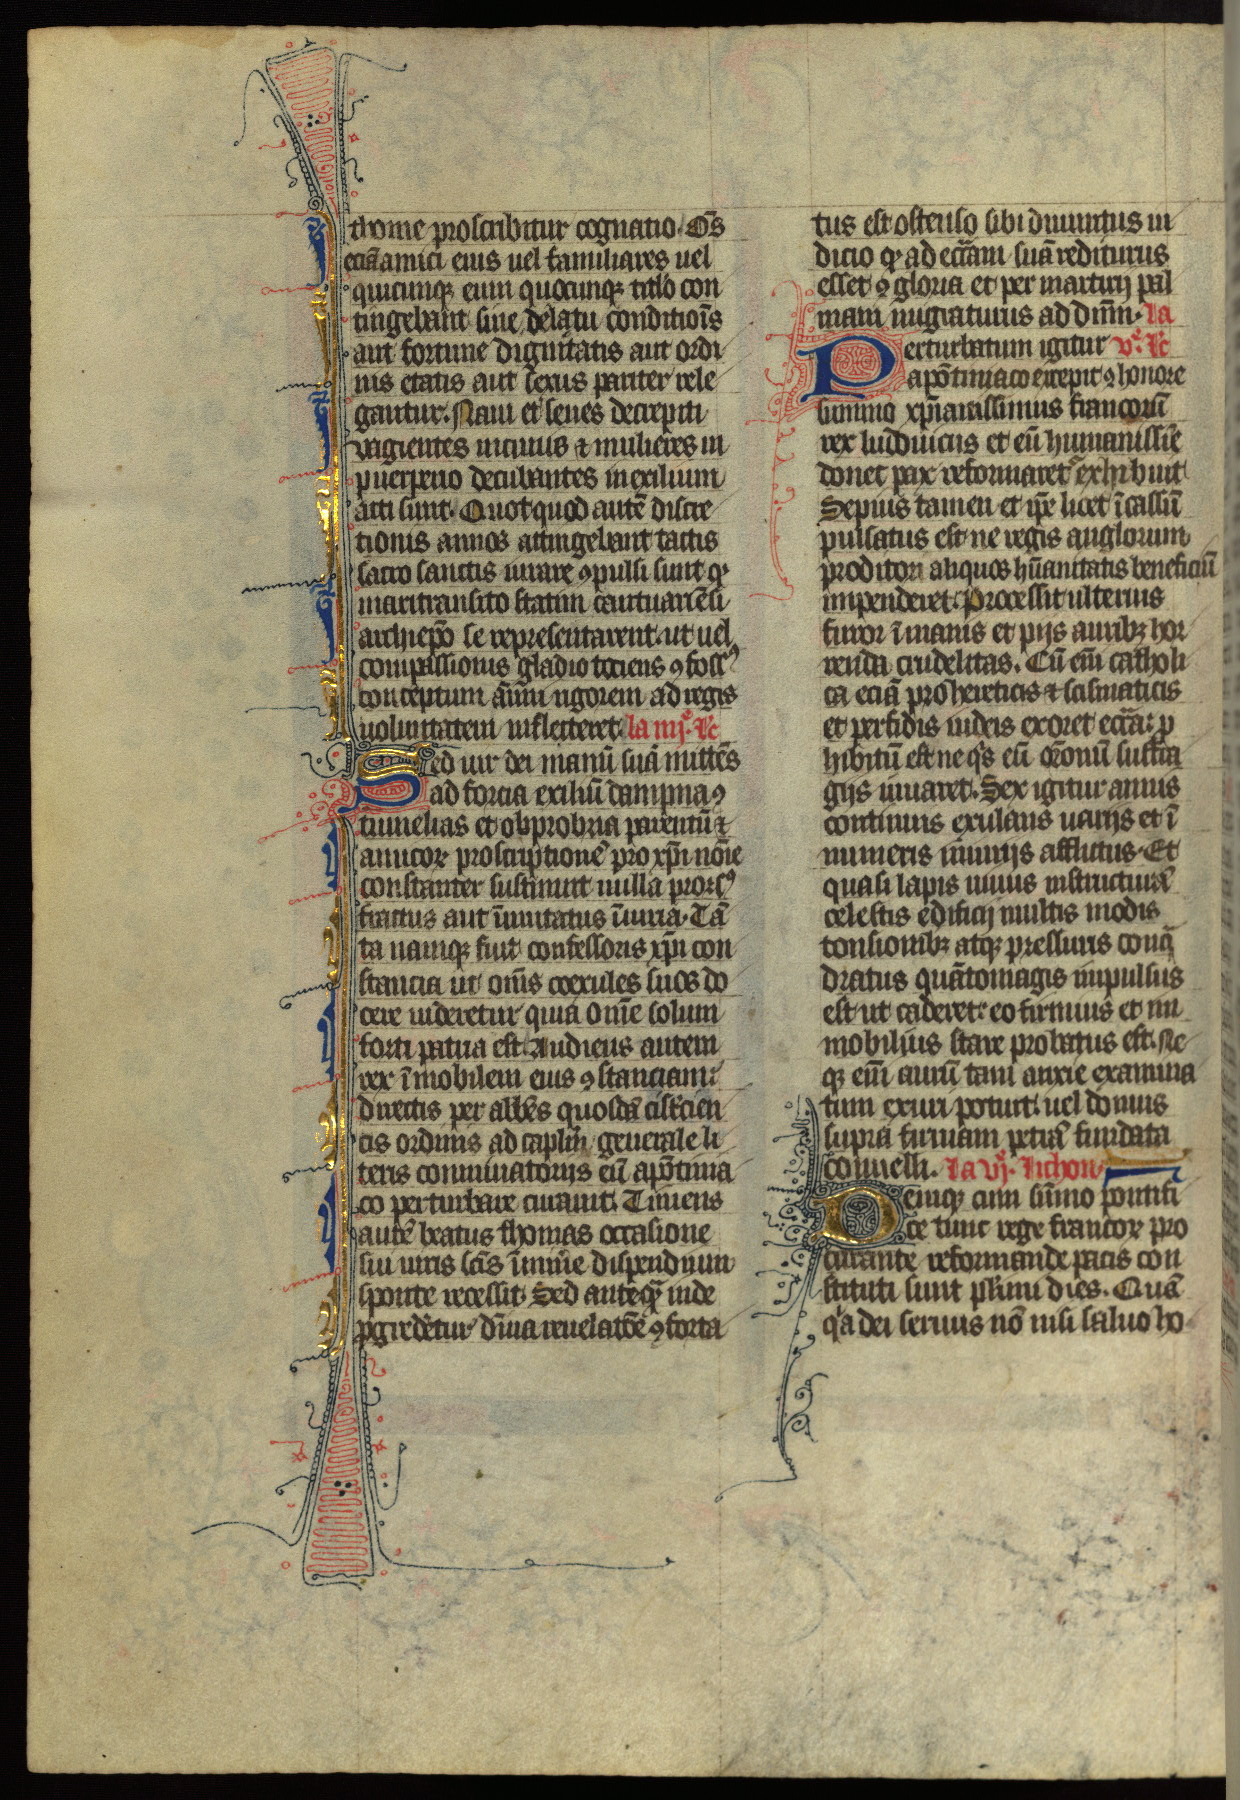 thome proscribitur cognatio. Oēs
eciā amici eius uel familiares uel
quicunqꝫ eum quocunqꝫ titlo con
tingebant sine delatu conditiōis
aut fortune dignitatis aut ordi
nis etatis aut sexus pariter rele
gantur. Nam et senes decrepiti
vagientes in cunis ⁊ mulieres in
puerperio decubantes in exilium
acti sunt. Quotquod autē discre
tionis annos attingebant tactis
sacro sanctis iurare ꝯpulsi sunt ꝙ
mari transito statim cantuariēsi
archiepō se representarent. ut uel
compassionis gladio tociens ꝯfossꝰ
conceptum animi rigorem ad regis
uoluntatem inflecteret. la iiijᵃ. R̄c
Sed uir dei manū suā mittēs
ad forcia exiliū dampna ꝯ
tumelias et obprobria parentū ⁊
amicoꝝ proscriptionē pro xp̄i nōie
constanter sustinuit nulla prorsꝰ
fractus aut īmutatus īiuria. Tā
ta namqꝫ fuit confessoris xp̄i con
stancia ut om̄s coexules suos do
cere uideretur quia om̄e solum
forti patria est. Audiens autem
rex īmobilem eius ꝯstanciam
directis per abb̄es quosdā cistercien
cis ordinis ad capl̄m generale li
teris comminatorijs eū a pōtinia
co perturbare curauit. Timens
autē beatus thomas occasione
sui uiris sc̄is īminē dispendium
sponte recessit. Sed anteqꝫ inde
ꝓgrederetur diuina reuelatōe ꝯforta
tus est ostenso sibi diuinitus in
dicio ꝙ ad ecclām suā rediturus
esset ꝯ gloria et per martirij pal
mam migraturus ad dn̄m. la
Perturbatum igitur vᵃ. R̄c
a pōtiniaco excepit ꝯ honore
summo xp̄ianissimus francorū
rex ludouicus et eū humanissīe
donec pax reformaretᵉ exhibuit
Sepius tamen et ip̄e licet ī cassū
pulsatus est ne regis anglorum
proditori aliquos hūanitatis beneficiū
impenderet. Processit ulterius
furor īmanis et pijs auribꝫ hor
renda crudelitas. Cū eīm catholi
ca eciā pro hereticis ⁊ scismaticis
et perfidis iudeis exoret eccīa: ꝓ
hibitū est ne qͥs eū or̄onū suffra
gijs iuuaret. Sex igitur annis
continuis exulans uarijs et ī
numeris iniurijs afflictus. Et
quasi lapis uiuus in structurā
celestis edificij multis modis
tonsionibꝫ atqꝫ pressuris conq̄
dratus quātomagis impulsus
est ut caderet: eo firmius et im
mobilius stare probatus est. Ne
qꝫ eīm aurū tam anxie examina
tum exuri potuit: uel domus
supra firmam petrā fundata
conuelli. La vjᵃ. Inchon
Deniqꝫ cum sūmo pontifi
ce tunc rege francoꝝ pro
curante reformande pacis con
stituti sunt plurimi dies. Quā
qͥa dei seruus nō nisi saluo ho